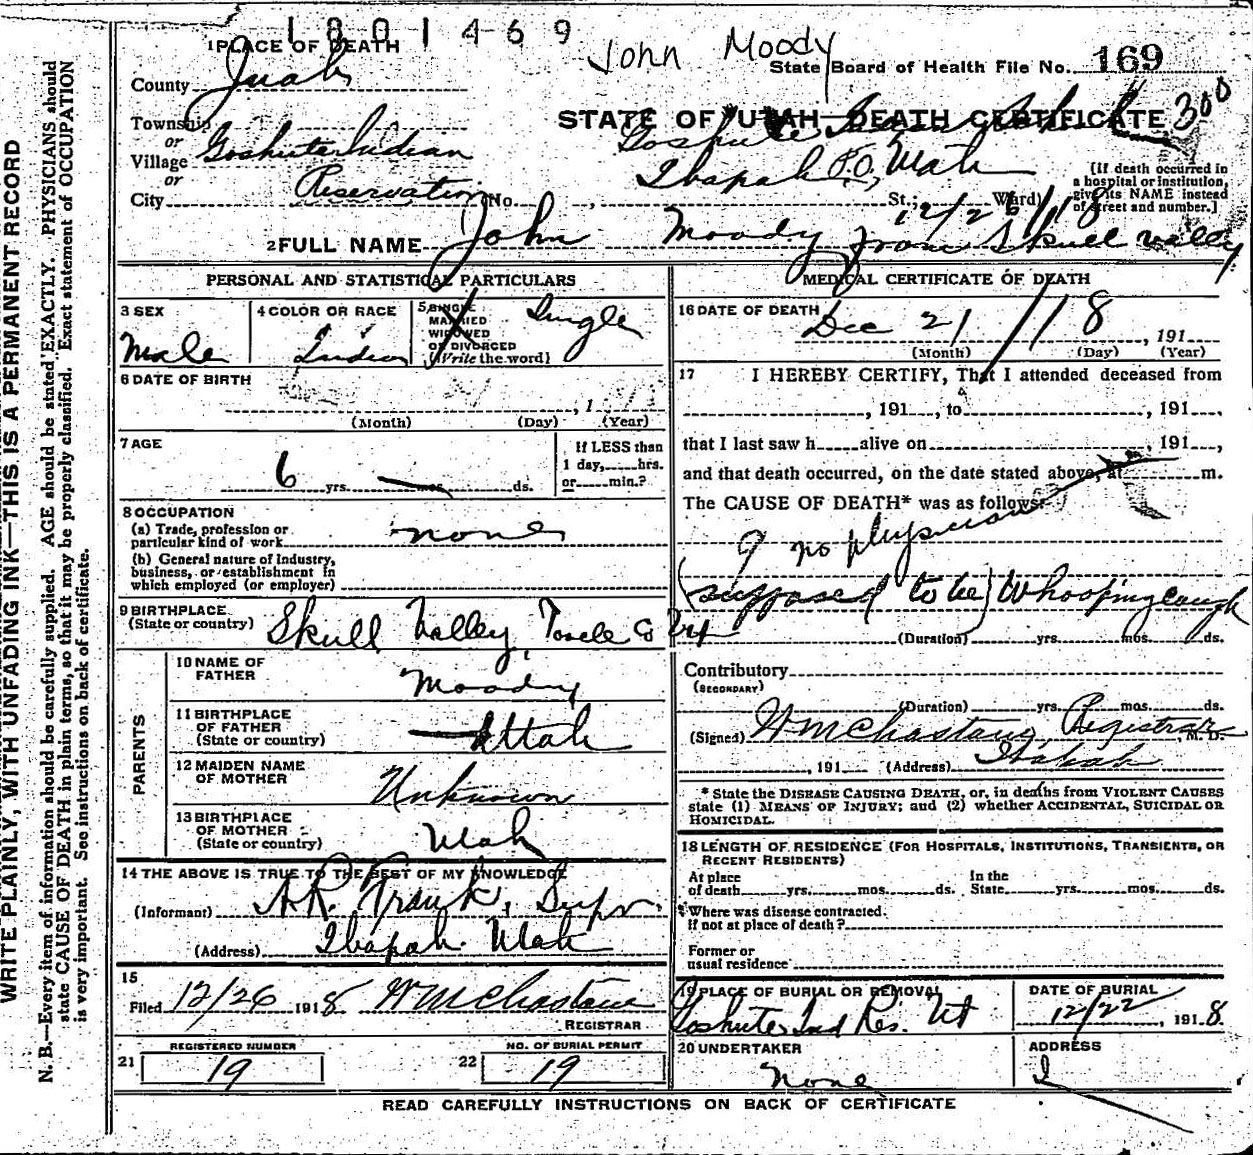 1801469
John Moody
1 PLACE OF DEATH
State Board of Health File No. 169
County Juab
STATE OF UTAH—DEATH CERTIFICATE 300
Township
or
Village Goshute Indian
or
City Reservation No. St.; Ward)
Goshute Indian
Ibapah P.O., Utah
[If death occurred in
a hospital or institution,
give its NAME instead
of street and number.]
12/26/18
2 FULL NAME John Moody from Skull Valley
PERSONAL AND STATISTICAL PARTICULARS
3 SEX
Male
4 COLOR OR RACE
Indian
5 SINGLE
MARRIED
WIDOWED
OR DIVORCED
(Write the word)
Single
6 DATE OF BIRTH
, 1
(Month) (Day) (Year)
7 AGE
6 yrs. mos. ds.
If LESS than
1 day, hrs.
or min.?
8 OCCUPATION
(a) Trade, profession or
particular kind of work none
(b) General nature of industry,
business, or establishment in
which employed (or employer)
9 BIRTHPLACE
(State or country) Skull Valley, Tooele Co Ut
PARENTS
10 NAME OF
FATHER Moody
11 BIRTHPLACE
OF FATHER
(State or country) Utah
12 MAIDEN NAME
OF MOTHER Unknown
13 BIRTHPLACE
OF MOTHER
(State or country) Utah
14 THE ABOVE IS TRUE TO THE BEST OF MY KNOWLEDGE
(Informant) A.R. Frank, Supr.
(Address) Ibapah Utah
15
Filed 12/26 1918 Wm Chastain
REGISTRAR
REGISTERED NUMBER
21 19
NO. OF BURIAL PERMIT
22 19
MEDICAL CERTIFICATE OF DEATH
16 DATE OF DEATH
Dec 21 /18, 191
(Month) (Day) (Year)
17 I HEREBY CERTIFY, That I attended deceased from
, 191 , to , 191 ,
that I last saw h alive on , 191 ,
and that death occurred, on the date stated above, at m.
The CAUSE OF DEATH* was as follows:
9 no physician
(supposed to be) Whooping cough
(Duration) yrs. mos. ds.
Contributory
(SECONDARY)
(Duration) yrs. mos. ds.
(Signed) Wm Chastain, Registrar, M. D.
, 191 (Address) Ibapah
* State the DISEASE CAUSING DEATH, or, in deaths from VIOLENT CAUSES
state (1) MEANS OF INJURY; and (2) whether ACCIDENTAL, SUICIDAL OR
HOMICIDAL.
18 LENGTH OF RESIDENCE (FOR HOSPITALS, INSTITUTIONS, TRANSIENTS, OR
RECENT RESIDENTS)
At place
of death yrs. mos. ds.
In the
State yrs. mos. ds.
Where was disease contracted.
if not at place of death?
Former or
usual residence
19 PLACE OF BURIAL OR REMOVAL
Goshute Ind Res. Ut
DATE OF BURIAL
12/22, 1918
20 UNDERTAKER
none
ADDRESS
READ CAREFULLY INSTRUCTIONS ON BACK OF CERTIFICATE
WRITE PLAINLY, WITH UNFADING INK—THIS IS A PERMANENT RECORD
N. B.—Every item of information should be carefully supplied. AGE should be stated EXACTLY. PHYSICIANS should
state CAUSE OF DEATH in plain terms, so that it may be properly classified. Exact statement of OCCUPATION
is very important. See instructions on back of certificate.